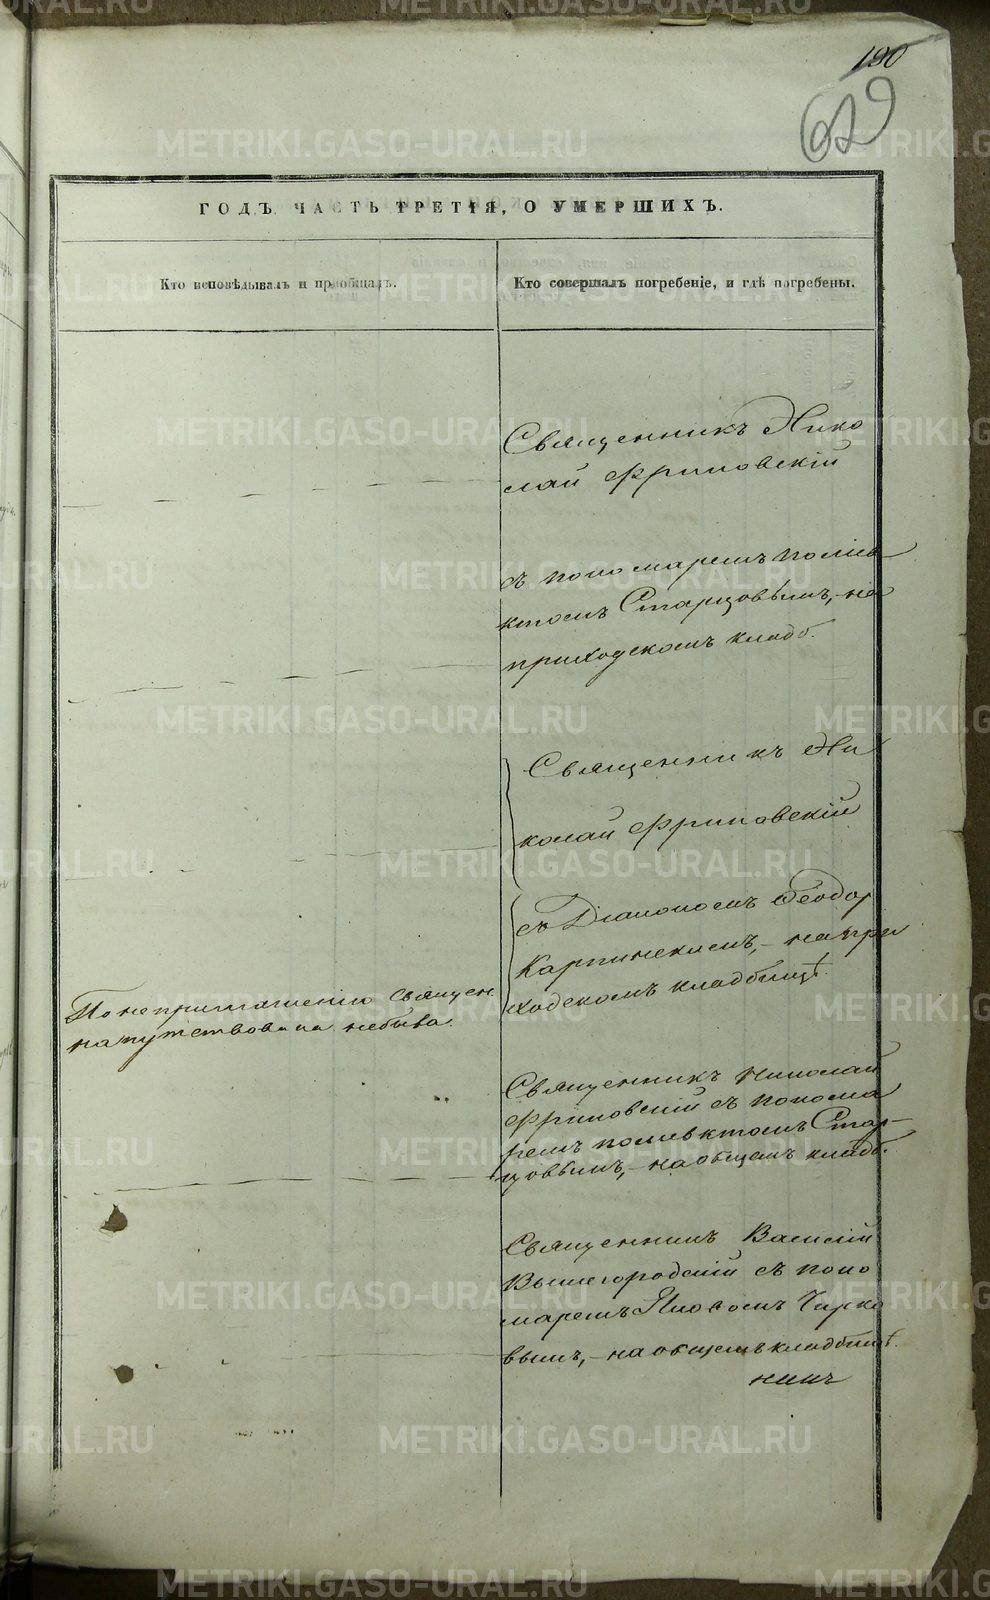 190
629
ГОДЪ ЧАСТЬ ТРЕТІЯ, О УМЕРШИХЪ.
Кто исповѣдывалъ и пріобщалъ.
Кто совершалъ погребеніе, и гдѣ погребены.
Священникъ Нико
лай Фриновскій
съ пономаремъ Поліев
ктомъ Старцовымъ, - на
приходскомъ кладб.
Священникъ Ни
колай Фриновскій
съ Діакономъ Ѳеодор
Карпинскимъ, - на при
ходскомъ кладбищѣ.
По неприглашенію Священ.
напутствована небыва
Священникъ Николай
Фриновскій съ понома
ремъ Полиевктомъ Стар-
цовымъ, - на общемъ кладб.
Священникъ Василій
Вышегородскій съ поно
маремъ Яковомъ Чирко
вымъ, - на общемъ кладбищѣ.
METRIKI.GASO-URAL.RU